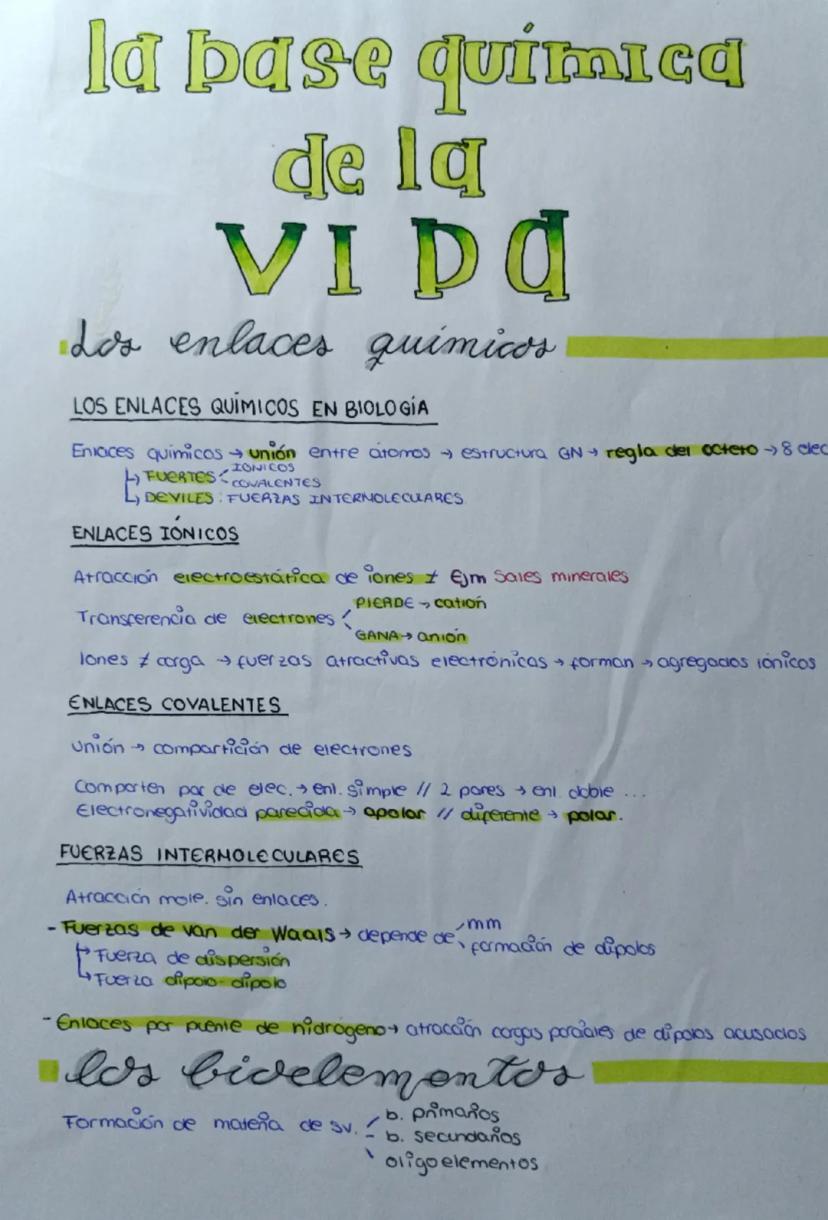 la base química
de la
VIDA
Los enlaces químicos
LOS ENLACES QUÍMICOS EN BIOLOGÍA
Enlaces químicos → unión entre átomos → estructura GN → regla del octeto → 8 elec
↳ FUERTES: IÓNICOS
COVALENTES
↳ DEVILES: FUERZAS INTERMOLECULARES
ENLACES IÓNICOS
Atracción electroestática de iones ≠ Ejm Sales minerales
Transferencia de electrones PIERDE → catión
GANA → anión
Iones ≠ carga → fuerzas atractivas electrónicas → forman → agregados iónicos
ENLACES COVALENTES
Unión → compartición de electrones
Comparten par de elec. → enl. simple // 2 pares → enl. doble ...
Electronegatividad parecida → apolar // diferente → polar.
FUERZAS INTERMOLECULARES
Atracción mole. sin enlaces.
- Fuerzas de van der Waals → depende de mm
formación de dipolos
↳ Fuerza de dispersión
↳ Fuerza dipolo-dipolo
- Enlaces por puente de hidrógeno → atracción cargas parciales de dipolos acusados
los bioelementos
Formación de materia de sv. b. primarios
- b. secundarios
oligoelementos